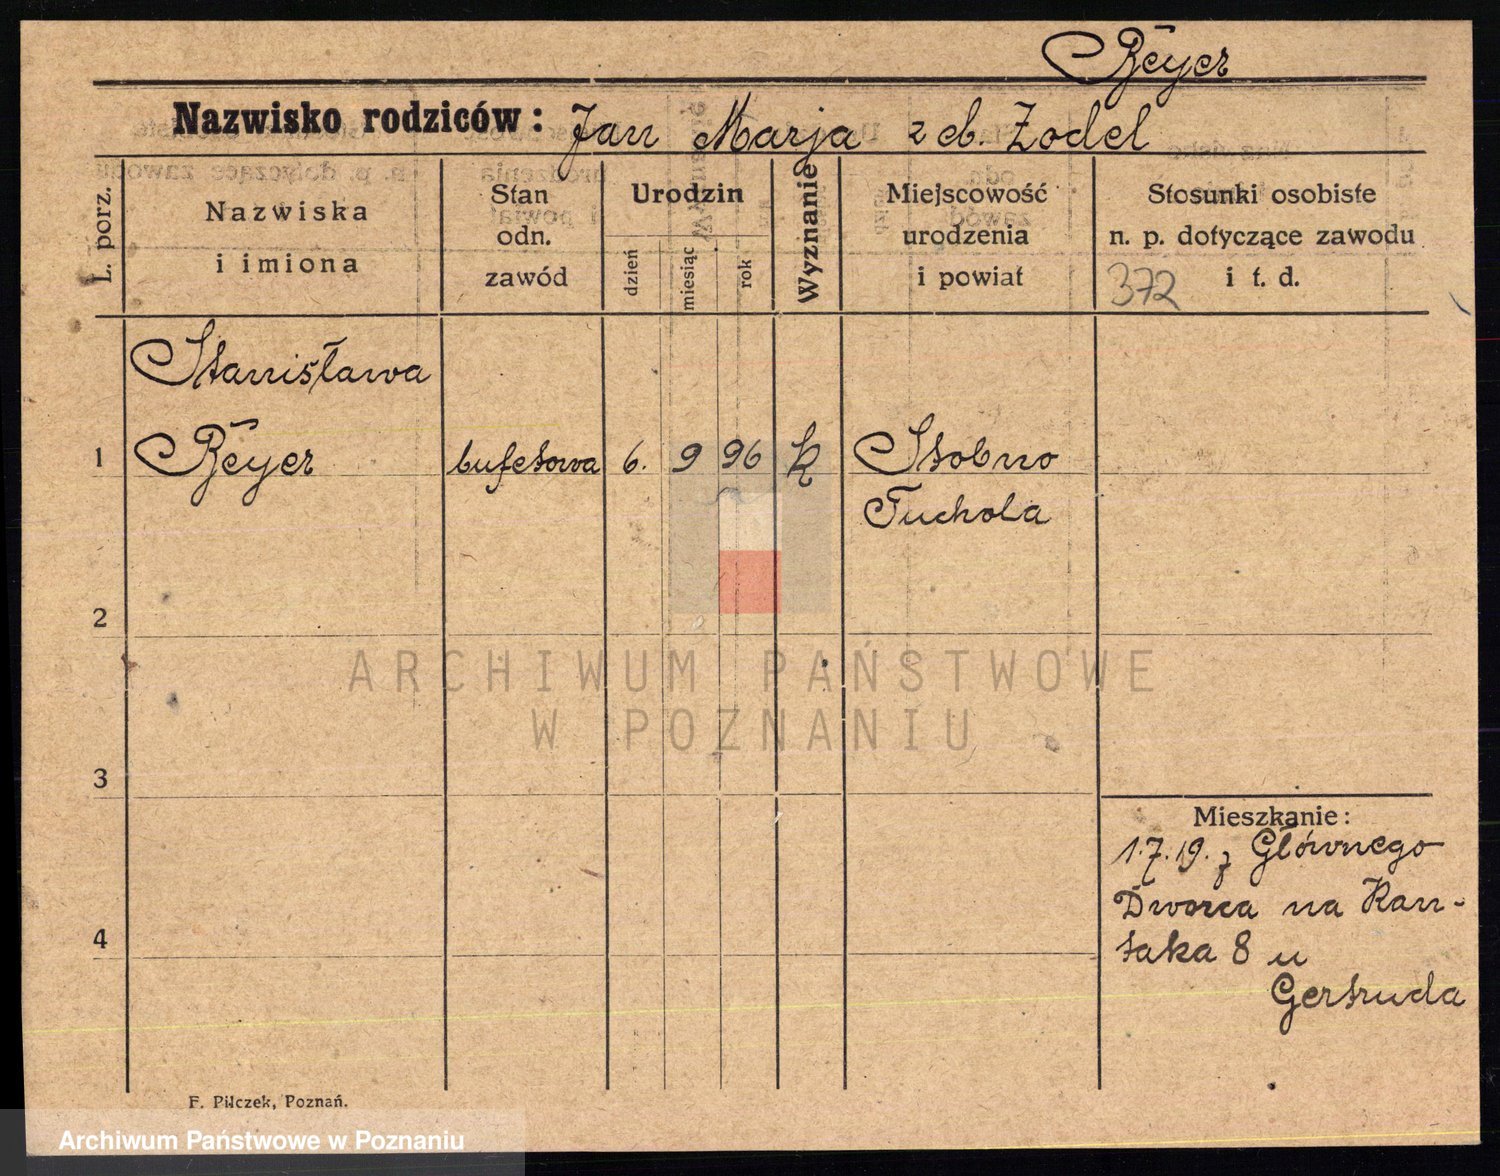 Beyer
Nazwisko rodziców: Jan Marja z d. Zodel
L. porz.
Nazwiska
i imiona
Stan
odn.
zawód
Urodzin
dzień
miesiąc
rok
Wyznanie
Miejscowość
urodzenia
i powiat
Stosunki osobiste
n. p. dotyczące zawodu
i t. d.
372
Stanisława
1 Beyer bufetowa 6. 9 96 k Stobno
Tuchola
2
ARCHIWUM PAŃSTWOWE
W POZNANIU
3
Mieszkanie:
1.7.19. z Głównego
Dworca na Ran-
4
taka 8 u
Gertruda
F. Pilczek, Poznań.
Archiwum Państwowe w Poznaniu